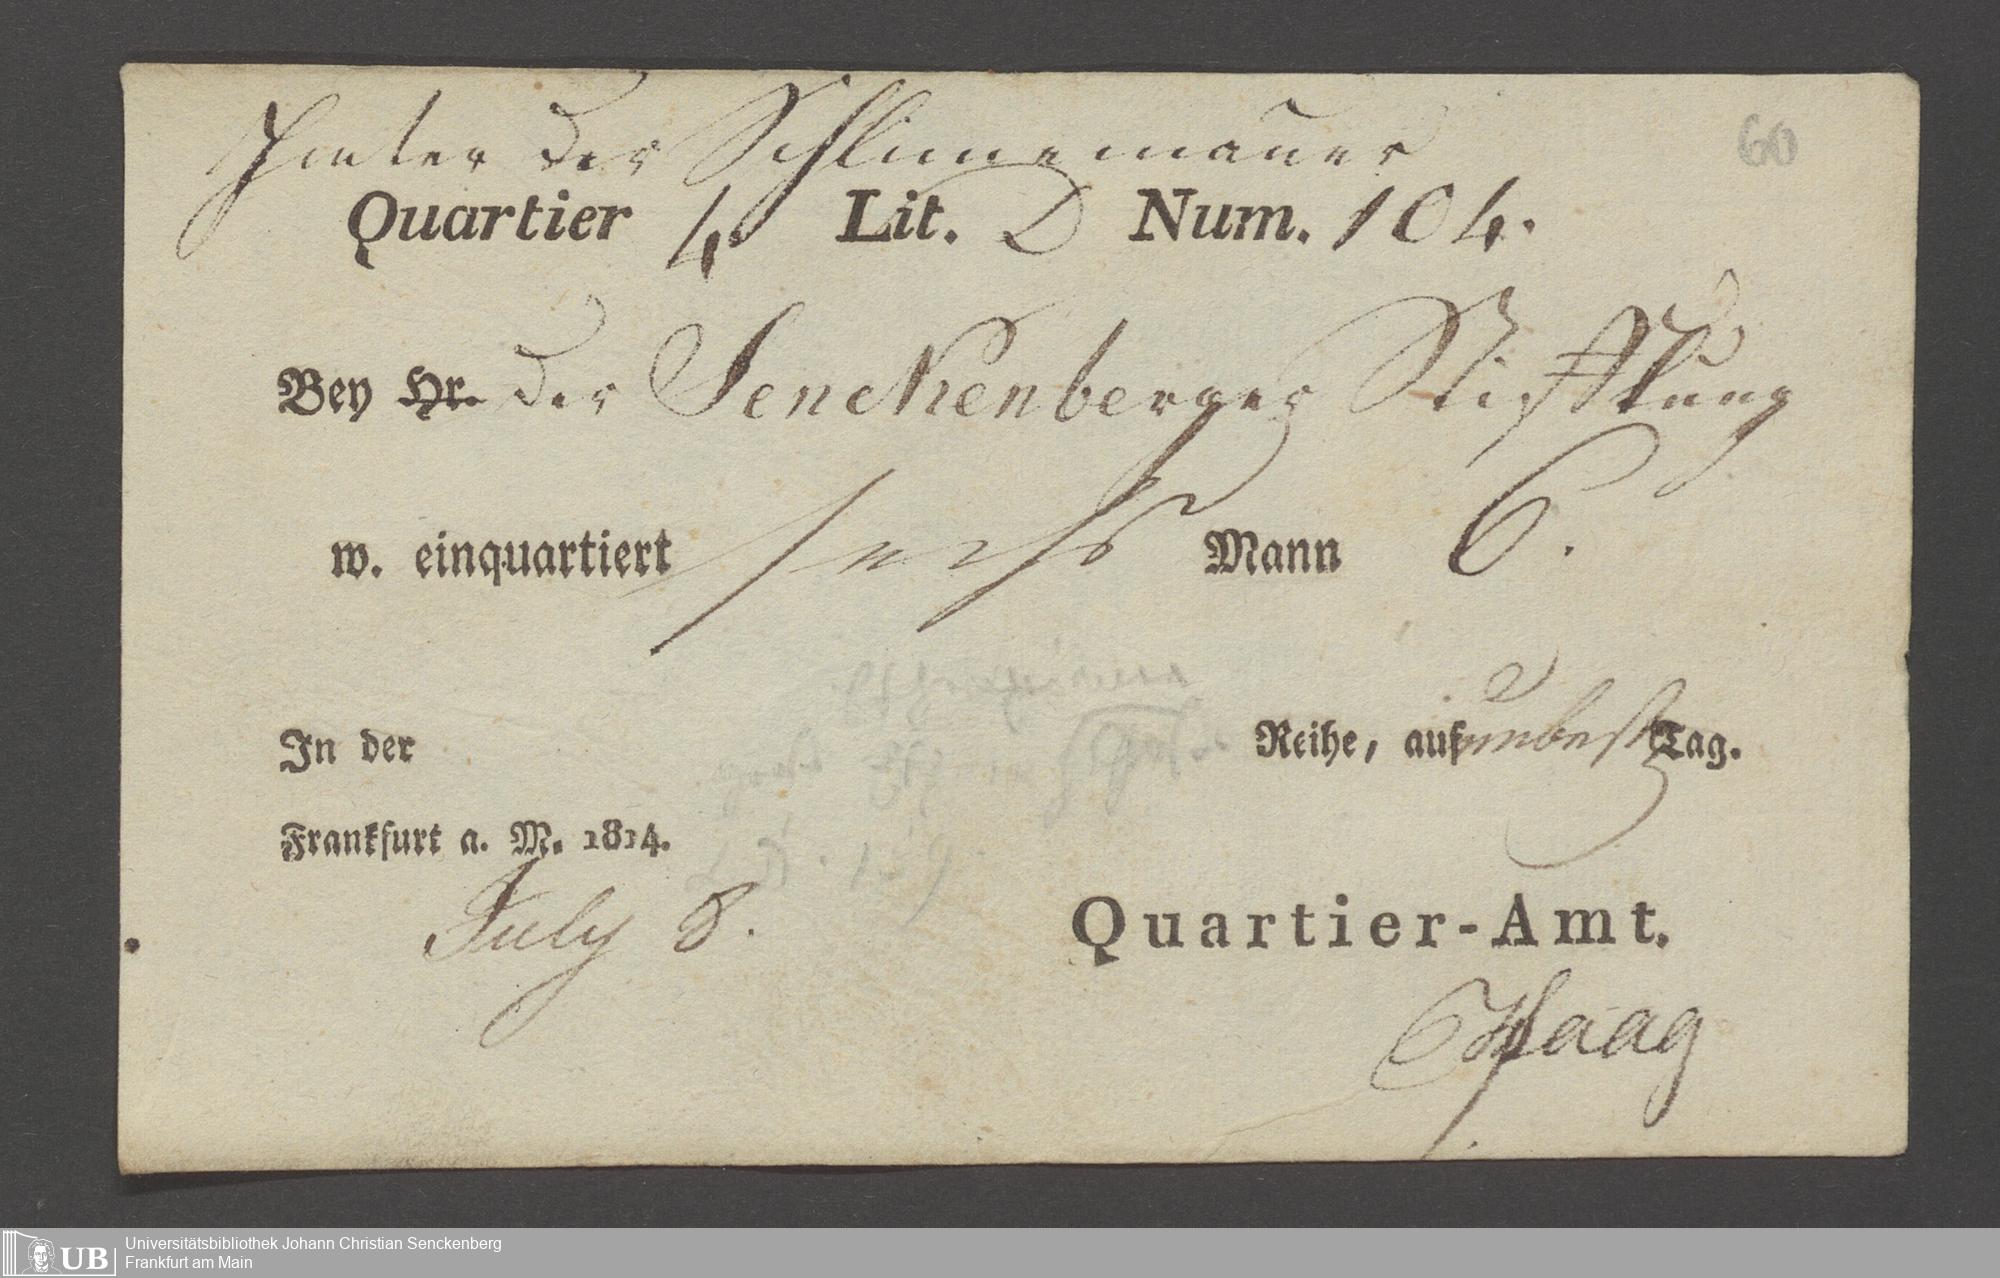 Hinter der Schlimmemauer
60
Quartier 4 Lit. D Num. 104.
Bey Hr. der Senckenberger Stifftung
w. einquartiert sechs Mann 6.
In der Reihe, auf unbest Tag.
Frankfurt a. M. 1814.
July 8.
Quartier-Amt.
Haag
UB Universitätsbibliothek Johann Christian Senckenberg
Frankfurt am Main